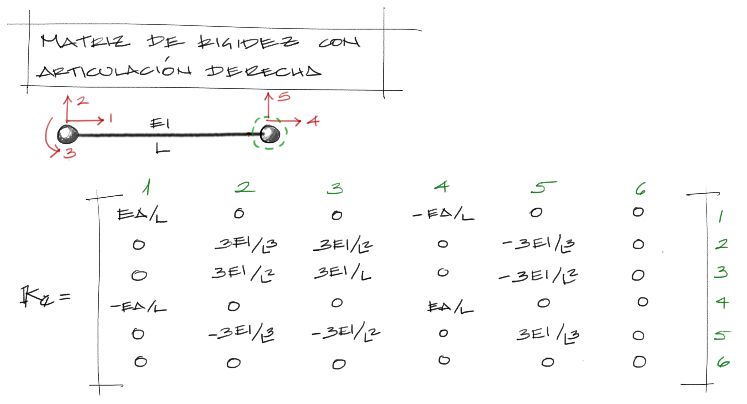 MATRIZ DE RIGIDEZ CON
ARTICULACIÓN DERECHA
2 5
1 EI 4
3 L
1 2 3 4 5 6
EA/L 0 0 -EA/L 0 0 1
0 3EI/L3 3EI/L2 0 -3EI/L3 0 2
0 3EI/L2 3EI/L 0 -3EI/L2 0 3
K2=
-EA/L 0 0 EA/L 0 0 4
0 -3EI/L3 -3EI/L2 0 3EI/L3 0 5
0 0 0 0 0 0 6